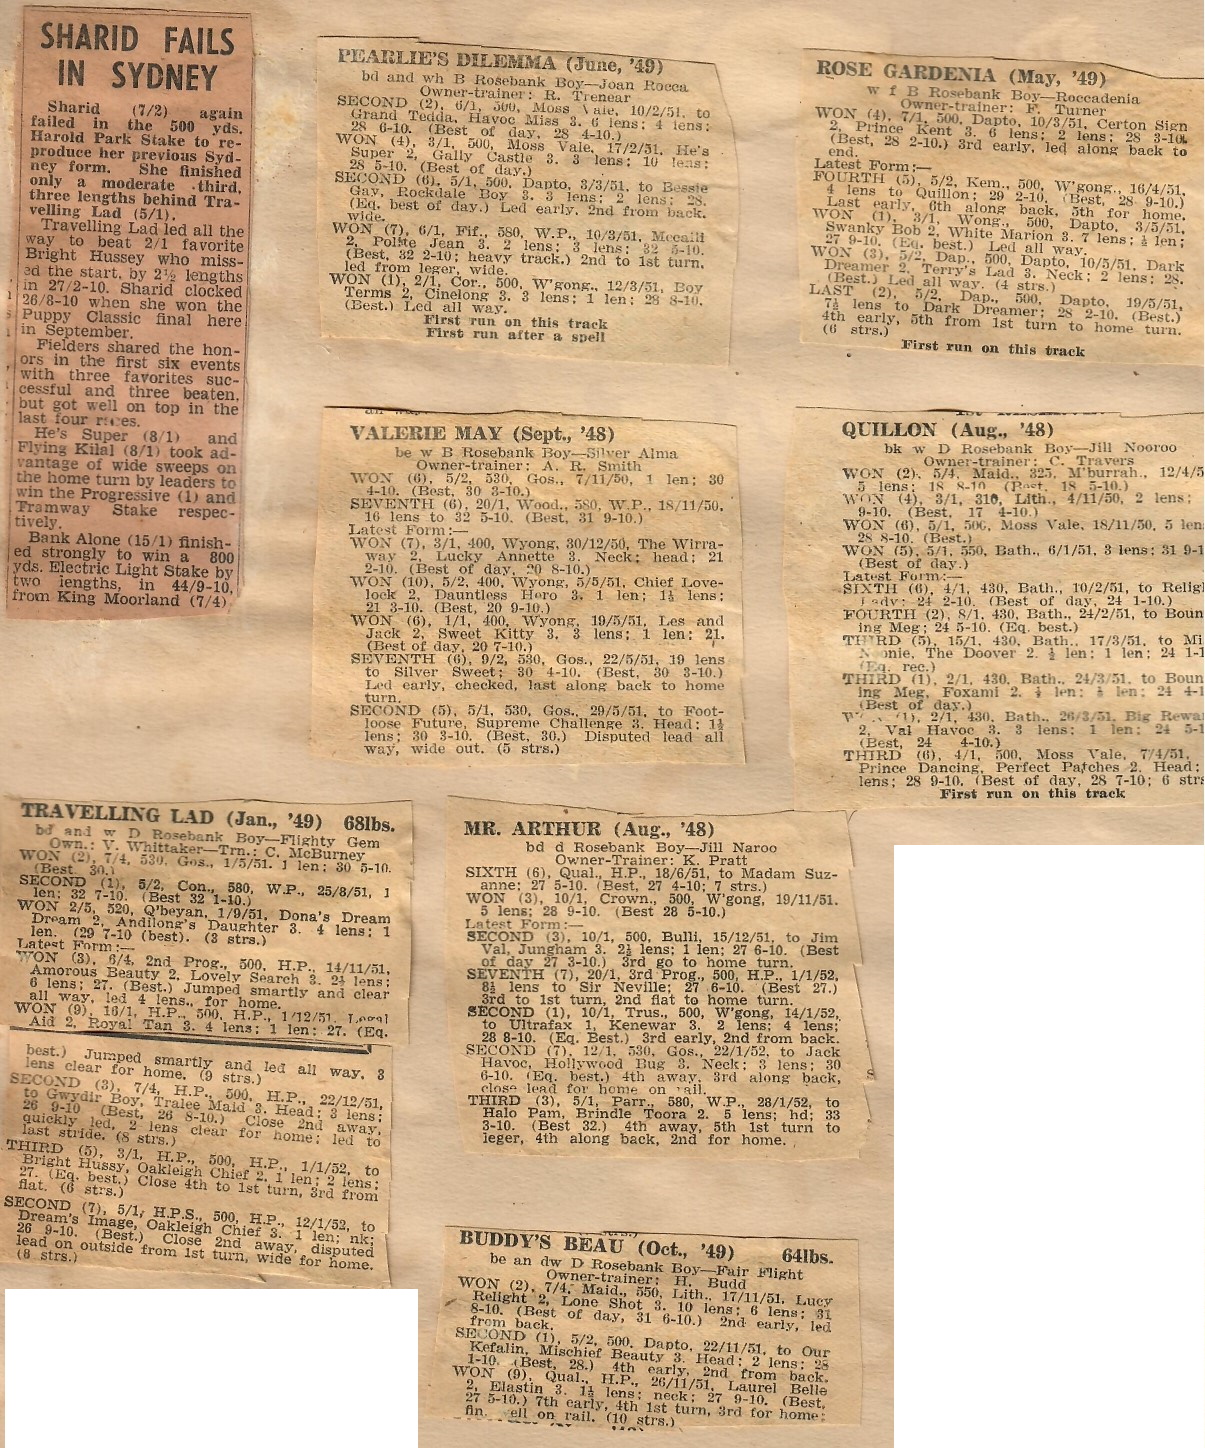 SHARID FAILS
IN SYDNEY
Sharid (7/2) again
failed in the 500 yds.
Harold Park Stake to re-
produce her previous Syd-
ney form. She finished
only a moderate third,
three lengths behind Tra-
velling Lad (5/1).
Travelling Lad led all the
way to beat 2/1 favorite
Bright Hussey who miss-
ed the start, by 2½ lengths
in 27/2-10. Sharid clocked
26/8-10 when she won the
Puppy Classic final here
in September.
Fielders shared the hon-
ors in the first six events
with three favorites suc-
cessful and three beaten,
but got well on top in the
last four races.
He's Super (8/1) and
Flying Kilal (8/1) took ad-
vantage of wide sweeps on
the home turn by leaders to
win the Progressive (1) and
Tramway Stake respec-
tively.
Bank Alone (15/1) finish-
ed strongly to win a 800
yds. Electric Light Stake by
two lengths, in 44/9-10,
from King Moorland (7/4)
PEARLIE'S DILEMMA (June, '49)
bd and wh B Rosebank Boy—Joan Rocca
Owner-trainer: R. Trenear
SECOND (2), 6/1, 500, Moss Vale, 10/2/51, to
Grand Tedda, Havoc Miss 3. 6 lens; 4 lens;
28 6-10. (Best of day, 28 4-10.)
WON (4), 3/1, 500, Moss Vale, 17/2/51, He's
Super 2, Gally Castle 3. 3 lens; 10 lens;
28 5-10. (Best of day.)
SECOND (6), 5/1, 500, Dapto, 3/3/51, to Bessie
Gay, Rockdale Boy 3. 3 lens; 2 lens; 28.
(Eq. best of day.) Led early, 2nd from back,
wide.
WON (7), 6/1, Fif., 580, W.P., 10/3/51, Mccaill
2, Polite Jean 3. 2 lens; 3 lens; 32 5-10.
(Best, 32 2-10; heavy track.) 2nd to 1st turn,
led from leger, wide.
WON (1), 2/1, Cor., 500, W'gong., 12/3/51, Boy
Terms 2, Cinelong 3. 3 lens; 1 len; 28 8-10.
(Best.) Led all way.
First run on this track
First run after a spell
ROSE GARDENIA (May, '49)
w f B Rosebank Boy—Roccadenia
Owner-trainer: F. Turner
WON (4), 7/1, 500, Dapto, 10/3/51, Certon Sign
2, Prince Kent 3. 6 lens; 2 lens; 28 3-10.
(Best, 28 2-10.) 3rd early, led along back to
end.
Latest Form:—
FOURTH (5), 5/2, Kem., 500, W'gong., 16/4/51,
4 lens to Quillon; 29 2-10. (Best, 28 9-10.)
Last early, 6th along back, 5th for home.
WON (1), 3/1, Wong., 500, Dapto, 3/5/51,
Swanky Bob 2, White Marion 3. 7 lens; ½ len;
27 9-10. (Eq. best.) Led all way.
WON (3), 5/2, Dap., 500, Dapto, 10/5/51, Dark
Dreamer 2, Terry's Lad 3. Neck; 2 lens; 28.
(Best.) Led all way. (4 strs.)
LAST (2), 5/2, Dap., 500, Dapto, 19/5/51,
7½ lens to Dark Dreamer; 28 2-10. (Best.)
4th early, 5th from 1st turn to home turn.
(6 strs.)
First run on this track
VALERIE MAY (Sept., '48)
be w B Rosebank Boy—Silver Alma
Owner-trainer: A. R. Smith
WON (6), 5/2, 530, Gos., 7/11/50, 1 len; 30
4-10. (Best, 30 3-10.)
SEVENTH (6), 20/1, Wood., 580, W.P., 18/11/50,
16 lens to 32 5-10. (Best, 31 9-10.)
Latest Form:—
WON (7), 3/1, 400, Wyong, 30/12/50, The Wirra-
way 2, Lucky Annette 3. Neck; head; 21
2-10. (Best of day, 20 8-10.)
WON (10), 5/2, 400, Wyong, 5/5/51, Chief Love-
lock 2, Dauntless Hero 3. 1 len; 1½ lens;
21 3-10. (Best, 20 9-10.)
WON (6), 1/1, 400, Wyong, 19/5/51, Les and
Jack 2, Sweet Kitty 3. 3 lens; 1 len; 21.
(Best of day, 20 7-10.)
SEVENTH (6), 9/2, 530, Gos., 22/5/51, 19 lens
to Silver Sweet; 30 4-10. (Best, 30 3-10.)
Led early, checked, last along back to home
turn.
SECOND (5), 5/1, 530, Gos., 29/5/51, to Foot-
loose Future, Supreme Challenge 3. Head; 1½
lens; 30 3-10. (Best, 30.) Disputed lead all
way, wide out. (5 strs.)
QUILLON (Aug., '48)
bk w D Rosebank Boy—Jill Nooroo
Owner-trainer: C. Travers
WON (2), 5/4, Maid., 325, M'burrah., 12/4/5
5 lens; 18 8-10. (Best, 18 5-10.)
WON (4), 3/1, 310, Lith., 4/11/50, 2 lens;
9-10. (Best, 17 4-10.)
WON (6), 5/1, 500, Moss Vale, 18/11/50, 5 len
28 8-10. (Best.)
WON (5), 5/1, 550, Bath., 6/1/51, 3 lens; 31 9-1
(Best of day.)
Latest Form:—
SIXTH (6), 4/1, 430, Bath., 10/2/51, to Relig
Lady; 24 2-10. (Best of day, 24 1-10.)
FOURTH (2), 8/1, 430, Bath., 24/2/51, to Boun
ing Meg; 24 5-10. (Eq. best.)
THIRD (5), 15/1, 430, Bath., 17/3/51, to Mi
Noonie, The Doover 2. ½ len; 1 len; 24 1-1
(Eq. rec.)
THIRD (1), 2/1, 430, Bath., 24/3/51, to Boun
ing Meg, Foxami 2. len; len; 24 4-1
(Best of day.)
(1), 2/1, 430, Bath., 26/3/51, Big Rewa
2, Val Havoc 3. 3 lens; 1 len; 24 5-1
(Best, 24 4-10.)
THIRD (6), 4/1, 500, Moss Vale, 7/4/51,
Prince Dancing, Perfect Patches 2. Head;
lens; 28 9-10. (Best of day, 28 7-10; 6 strs
First run on this track
TRAVELLING LAD (Jan., '49) 68lbs.
bd and w D Rosebank Boy—Flighty Gem
Own.: V. Whittaker—Trn.: C. McBurney
WON (2), 7/4, 530, Gos., 1/5/51. 1 len; 30 5-10.
(Best 30.)
SECOND (1), 5/2, Con., 580, W.P., 25/8/51, 1
len; 32 7-10. (Best 32 1-10.)
WON 2/5, 520, Q'beyan, 1/9/51, Dona's Dream
Dream 2, Andilong's Daughter 3. 4 lens; 1
len. (29 7-10 (best). (3 strs.)
Latest Form:—
WON (3), 6/4, 2nd Prog., 500, H.P., 14/11/51,
Amorous Beauty 2, Lovely Search 3. 2½ lens;
6 lens; 27. (Best.) Jumped smartly and clear
all way, led 4 lens., for home.
WON (9), 16/1, H.P., 500, H.P., 1/12/51, Legal
Aid 2, Royal Tan 3. 4 lens; 1 len; 27. (Eq.
best.) Jumped smartly and led all way, 3
lens clear for home. (9 strs.)
SECOND (3), 7/4, H.P., 500, H.P., 22/12/51,
to Gwydir Boy, Tralee Maid 3. Head; 3 lens;
26 9-10 (Best, 26 8-10.) Close 2nd away,
quickly led, 2 lens clear for home; led to
last stride. (8 strs.)
THIRD (5), 3/1, H.P., 500, H.P., 1/1/52, to
Bright Hussy, Oakleigh Chief 2. 1 len; 2 lens;
27. (Eq. best.) Close 4th to 1st turn, 3rd from
flat. (6 strs.)
SECOND (7), 5/1, H.P.S., 500, H.P., 12/1/52, to
Dream's Image, Oakleigh Chief 3. 1 len; nk;
26 9-10. (Best.) Close 2nd away, disputed
lead on outside from 1st turn, wide for home.
(8 strs.)
MR. ARTHUR (Aug., '48)
bd d Rosebank Boy—Jill Naroo
Owner-Trainer: K. Pratt
SIXTH (6), Qual., H.P., 18/6/51, to Madam Suz-
anne; 27 5-10. (Best, 27 4-10; 7 strs.)
WON (3), 10/1, Crown., 500, W'gong, 19/11/51.
5 lens; 28 9-10. (Best 28 5-10.)
Latest Form:—
SECOND (3), 10/1, 500, Bulli, 15/12/51, to Jim
Val, Jungham 3. 2½ lens; 1 len; 27 6-10. (Best
of day 27 3-10.) 3rd go to home turn.
SEVENTH (7), 20/1, 3rd Prog., 500, H.P., 1/1/52,
8½ lens to Sir Neville; 27 6-10. (Best 27.)
3rd to 1st turn, 2nd flat to home turn.
SECOND (1), 10/1, Trus., 500, W'gong, 14/1/52,
to Ultrafax 1, Kenewar 3. 2 lens; 4 lens;
28 8-10. (Eq. Best.) 3rd early, 2nd from back.
SECOND (7), 12/1, 530, Gos., 22/1/52, to Jack
Havoc, Hollywood Bug 3. Neck; 3 lens; 30
6-10. (Eq. best.) 4th away, 3rd along back,
close lead for home on rail.
THIRD (3), 5/1, Parr., 580, W.P., 28/1/52, to
Halo Pam, Brindle Toora 2. 5 lens; hd; 33
3-10. (Best 32.) 4th away, 5th 1st turn to
leger, 4th along back, 2nd for home.
BUDDY'S BEAU (Oct., '49) 64lbs.
be an dw D Rosebank Boy—Fair Flight
Owner-trainer: H. Budd
WON (2), 7/4, Maid., 550, Lith., 17/11/51, Lucy
Relight 2, Lone Shot 3. 10 lens; 6 lens; 31
8-10. (Best of day, 31 6-10.) 2nd early, led
from back.
SECOND (1), 5/2, 500, Dapto, 22/11/51, to Our
Kefalin, Mischief Beauty 3. Head; 2 lens; 28
1-10. (Best, 28.) 4th early, 2nd from back.
WON (9), Qual., H.P., 26/11/51, Laurel Belle
2, Elastin 3. 1½ lens; neck; 27 9-10. (Best,
27 5-10.) 7th early, 4th 1st turn, 3rd for home;
fin. well on rail. (10 strs.)